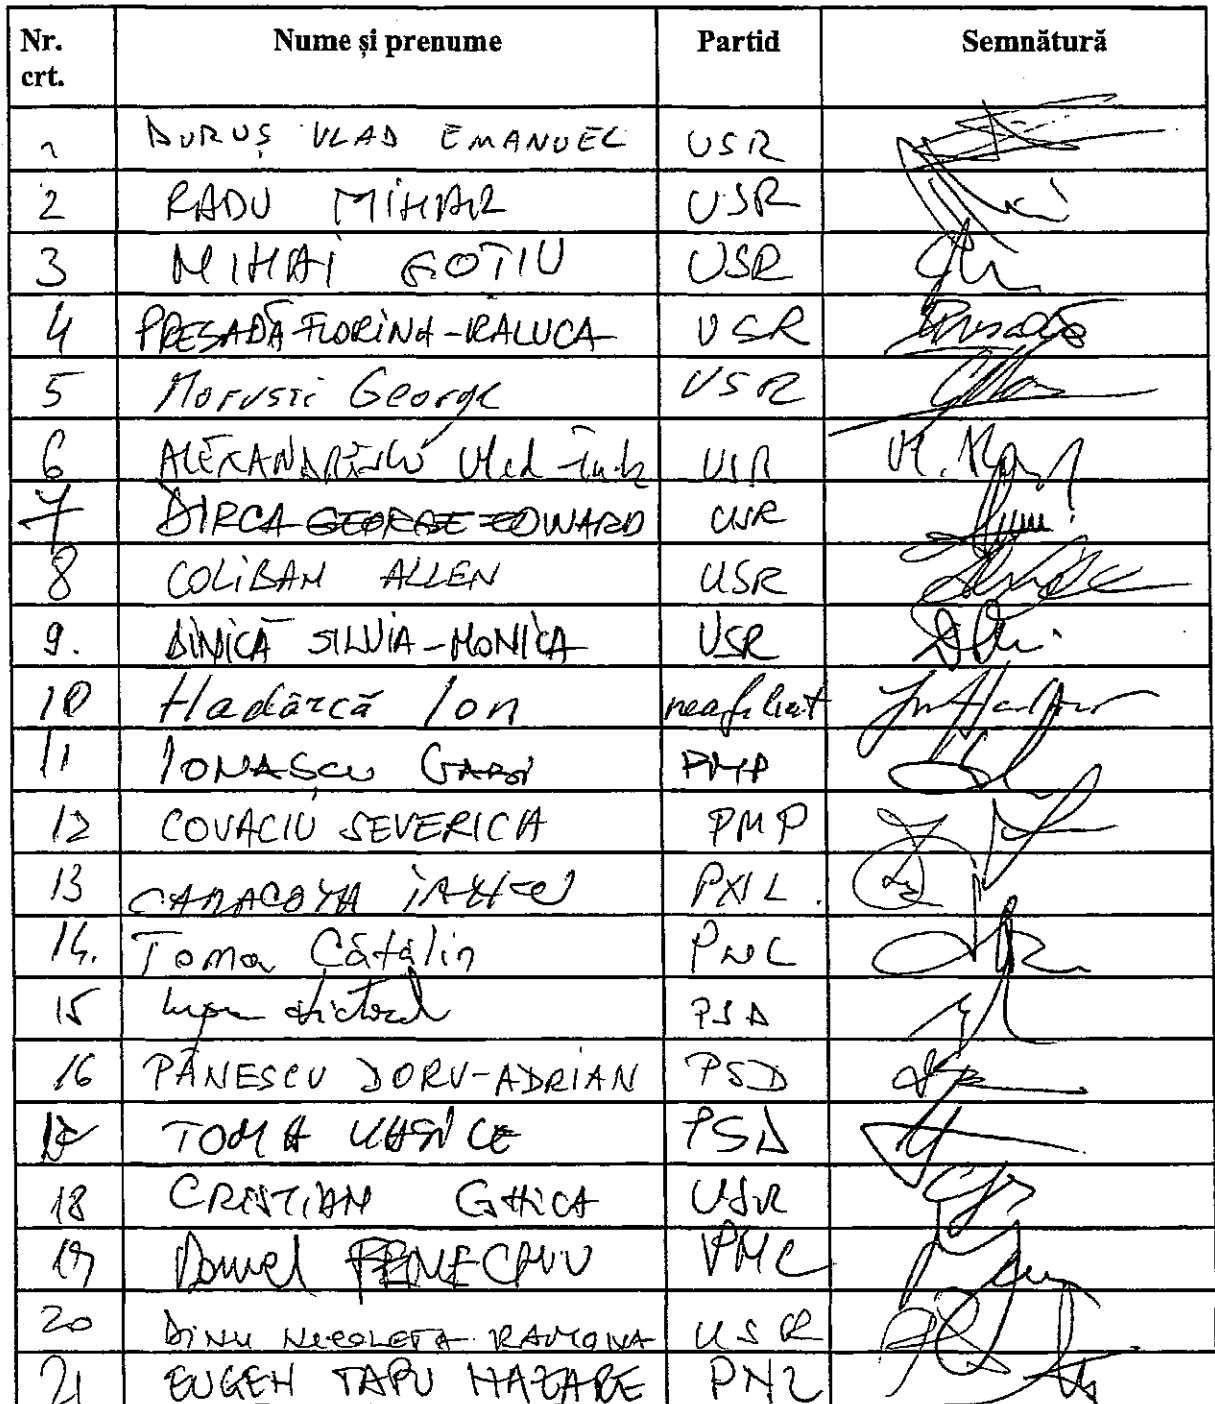 Nr. crt. Nume și prenume Partid Semnătură
1 DURUȘ VLAD EMANUEL USR
2 RADU MIHAIL USR
3 MIHAI GOȚIU USR
4 PRESADĂ FLORINA-RALUCA USR
5 Marussi George USR
6 ALEXANDRESCU Vlad USR
7 DIRCA GEORGE EDWARD USR
8 COLIBAN ALLEN USR
9. DINICĂ SILVIA-MONICA USR
10 Hadârcă Ion neafiliat
11 IONAȘCU GABI PMP
12 COVACIU SEVERICA PMP
13 CARACOTA IANCU PNL.
14. Toma Cătălin PNL
15 PSD
16 PĂNESCU DORU-ADRIAN PSD
17 TOMA VASILE PSD
18 CRISTIAN GHICA USR
19 Daniel FENECHIU PNL
20 DINU NICOLETA RAMONA USR
21 EUGEN ȚAPU NAZARE PNL